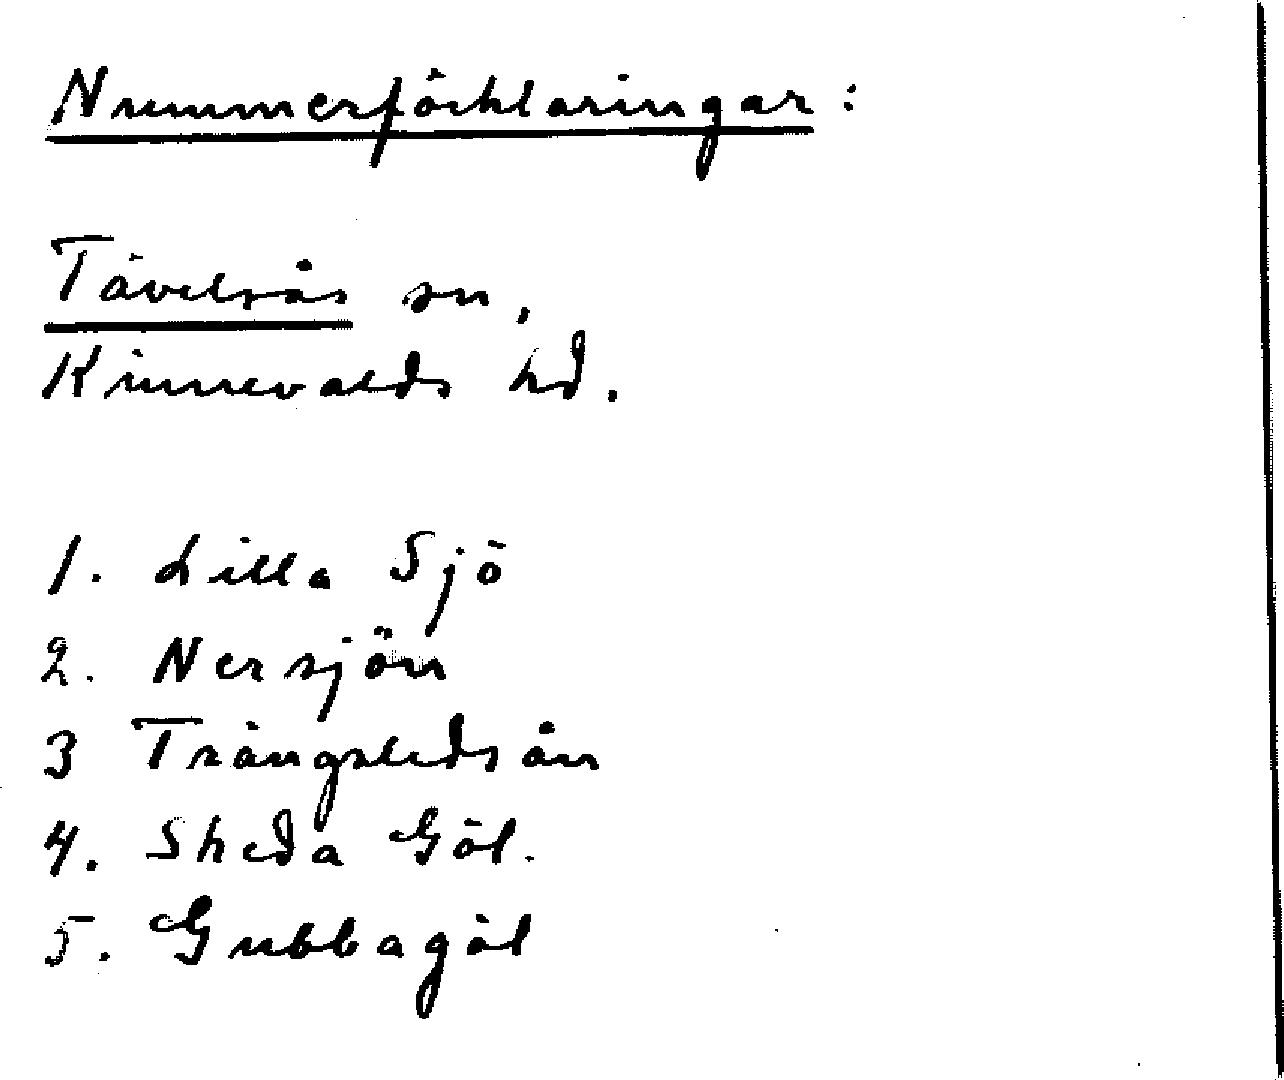 Nummerförklaringar:
Tävelsås sn,
Kinnevalds hd.
1. Lilla Sjö
2. Nersjön
3 Trängsledsån
4. Skeda Göl.
5. Gubbagöl